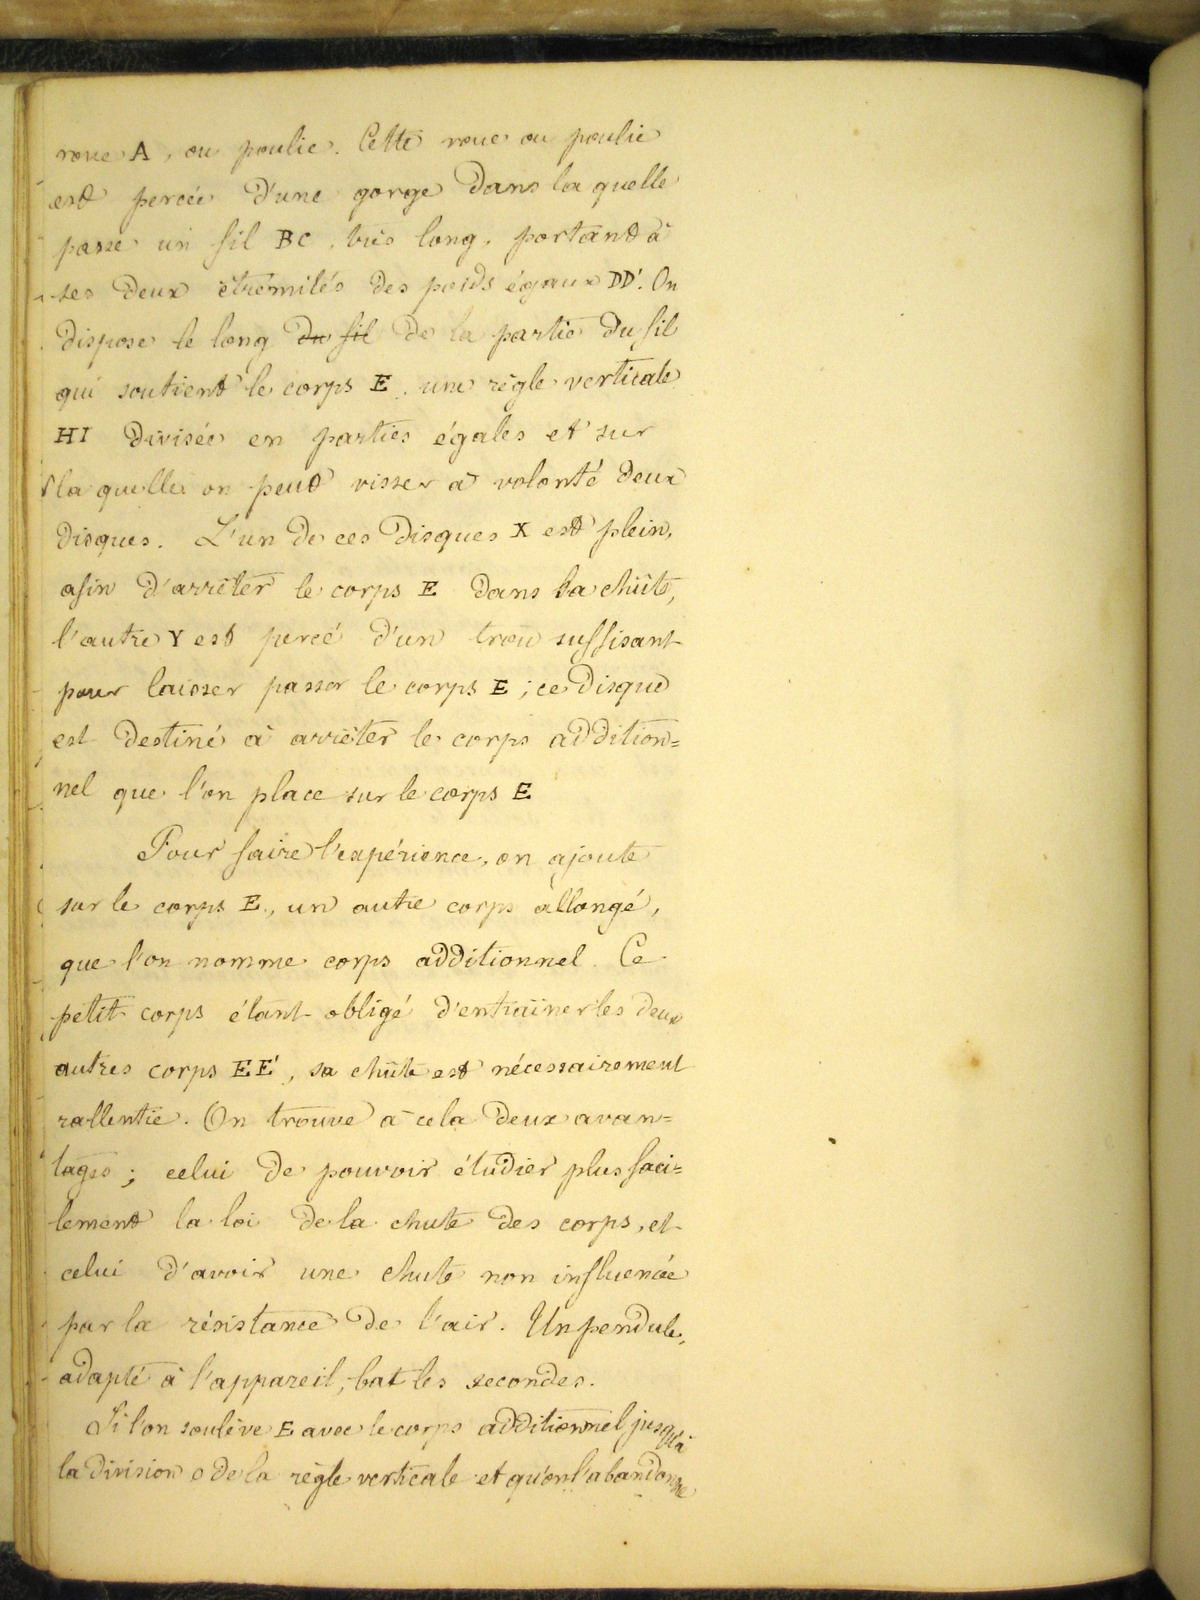 roue A, ou poulie. Cette roue ou poulie
est percée d'une gorge dans la quelle
passe un fil BC, très long, portant à
ses deux êtrémités des poids égaux DD'. On
dispose le long ~~du fil~~ de la partie du fil
qui soutient le corps E, une règle verticale
HI divisée en parties égales et sur
la quelle on peut visser à volonté deux
disques. L'un de ces disques X est plein,
afin d'arrêter le corps E dans sa chûte,
l'autre Y est percé d'un trou suffisant
pour laisser passer le corps E ; ce disque
est destiné à arrêter le corps addition=
nel que l'on place sur le corps E
Pour faire l'expérience, on ajoute
sur le corps E, un autre corps allongé,
que l'on nomme corps additionnel. Ce
petit corps étant obligé d'entraîner les deux
autres corps EE', sa chûte est nécessairement
rallentie. On trouve à cela deux avan=
tages ; celui de pouvoir étudier plus faci=
lement la loi de la chute des corps, et
celui d'avoir une chute non influencée
par la résistance de l'air. Un pendule,
adapté à l'appareil, bat les secondes.
Si l'on soulève E avec le corps additionnel jusqu'à
la division o de la règle verticale et qu'on l'abandonne